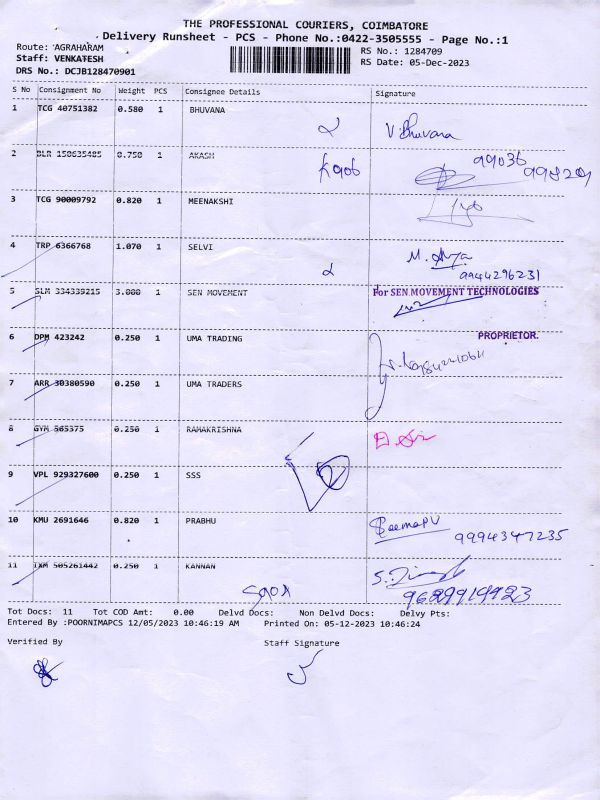 THE PROFESSIONAL COURIERS, COIMBATORE
Delivery Runsheet - PCS - Phone No.:0422-3505555 - Page No.:1
Route: AGRAHARAM RS No.: 1284709
Staff: VENKATESH RS Date: 05-Dec-2023
DRS No.: DCJB128470901
S No Consignment No Weight PCS Consignee Details Signature
1 TCG 40751382 0.580 1 BHUVANA V. Bhuvana
2 BLR 150635485 0.750 1 AKASH
3 TCG 90009792 0.820 1 MEENAKSHI
4 TRP 6366768 1.070 1 SELVI
9944296231
5 SLM 334339215 3.000 1 SEN MOVEMENT For SEN MOVEMENT TECHNOLOGIES
PROPRIETOR.
6 DPM 423242 0.250 1 UMA TRADING
7 ARR 30380590 0.250 1 UMA TRADERS
8 GYM 565375 0.250 1 RAMAKRISHNA
9 VPL 929327600 0.250 1 SSS
10 KMU 2691646 0.820 1 PRABHU
9994347235
11 TXM 505261442 0.250 1 KANNAN
9629919923
Tot Docs: 11 Tot COD Amt: 0.00 Delvd Docs: Non Delvd Docs: Delvy Pts:
Entered By :POORNIMAPCS 12/05/2023 10:46:19 AM Printed On: 05-12-2023 10:46:24
Verified By Staff Signature